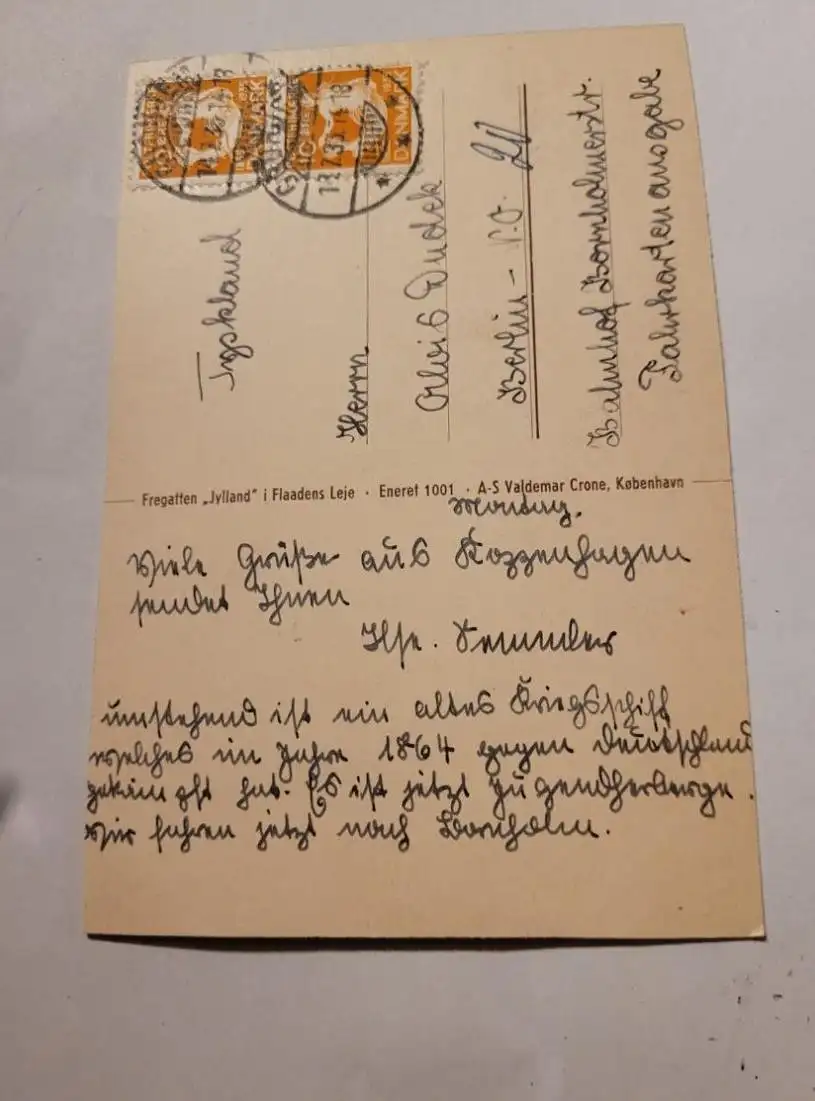 DANMARK
DANMARK
Tyskland
Herrn
Alois Dudek
Berlin - N.O.
Bahnhof Bornholmerstr.
Fahrkartenausgabe
Fregatten „Jylland" i Flaadens Leje · Eneret 1001 · A-S Valdemar Crone, København
Montag.
Viele Grüße aus Koppenhagen
sendet Ihnen
Ilse. Semmler
umstehend ist ein altes Kriegsschiff
welches im Jahre 1864 gegen Deutschland
gekämpft hat. Es ist jetzt Jugendherberge.
Wir fuhren jetzt nach Bornholm.